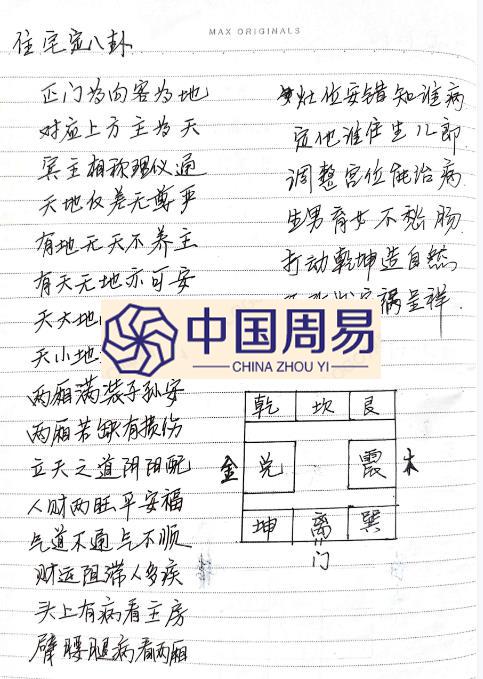 MAX ORIGINALS
住宅定八卦
正门为向客为地
对应上方主为天
宾主相称理仪通
天地仪差无尊严
有地无天不养主
有天无地亦可安
天大地
天小地
两厢满装子孙安
两厢若缺有损伤
立天之道阴阳配
人财两旺平安福
气道不通气不顺
财运阻滞人多疾
头上有病看主房
臂腰腿病看两厢
灶位安错知谁病
定他谁住生儿郎
调整宫位能治病
生男育女不愁肠
打动乾坤造自然
祸呈祥
中国周易
CHINA ZHOU YI
乾 坎 艮
金 兑 震 木
坤 离 巽
门